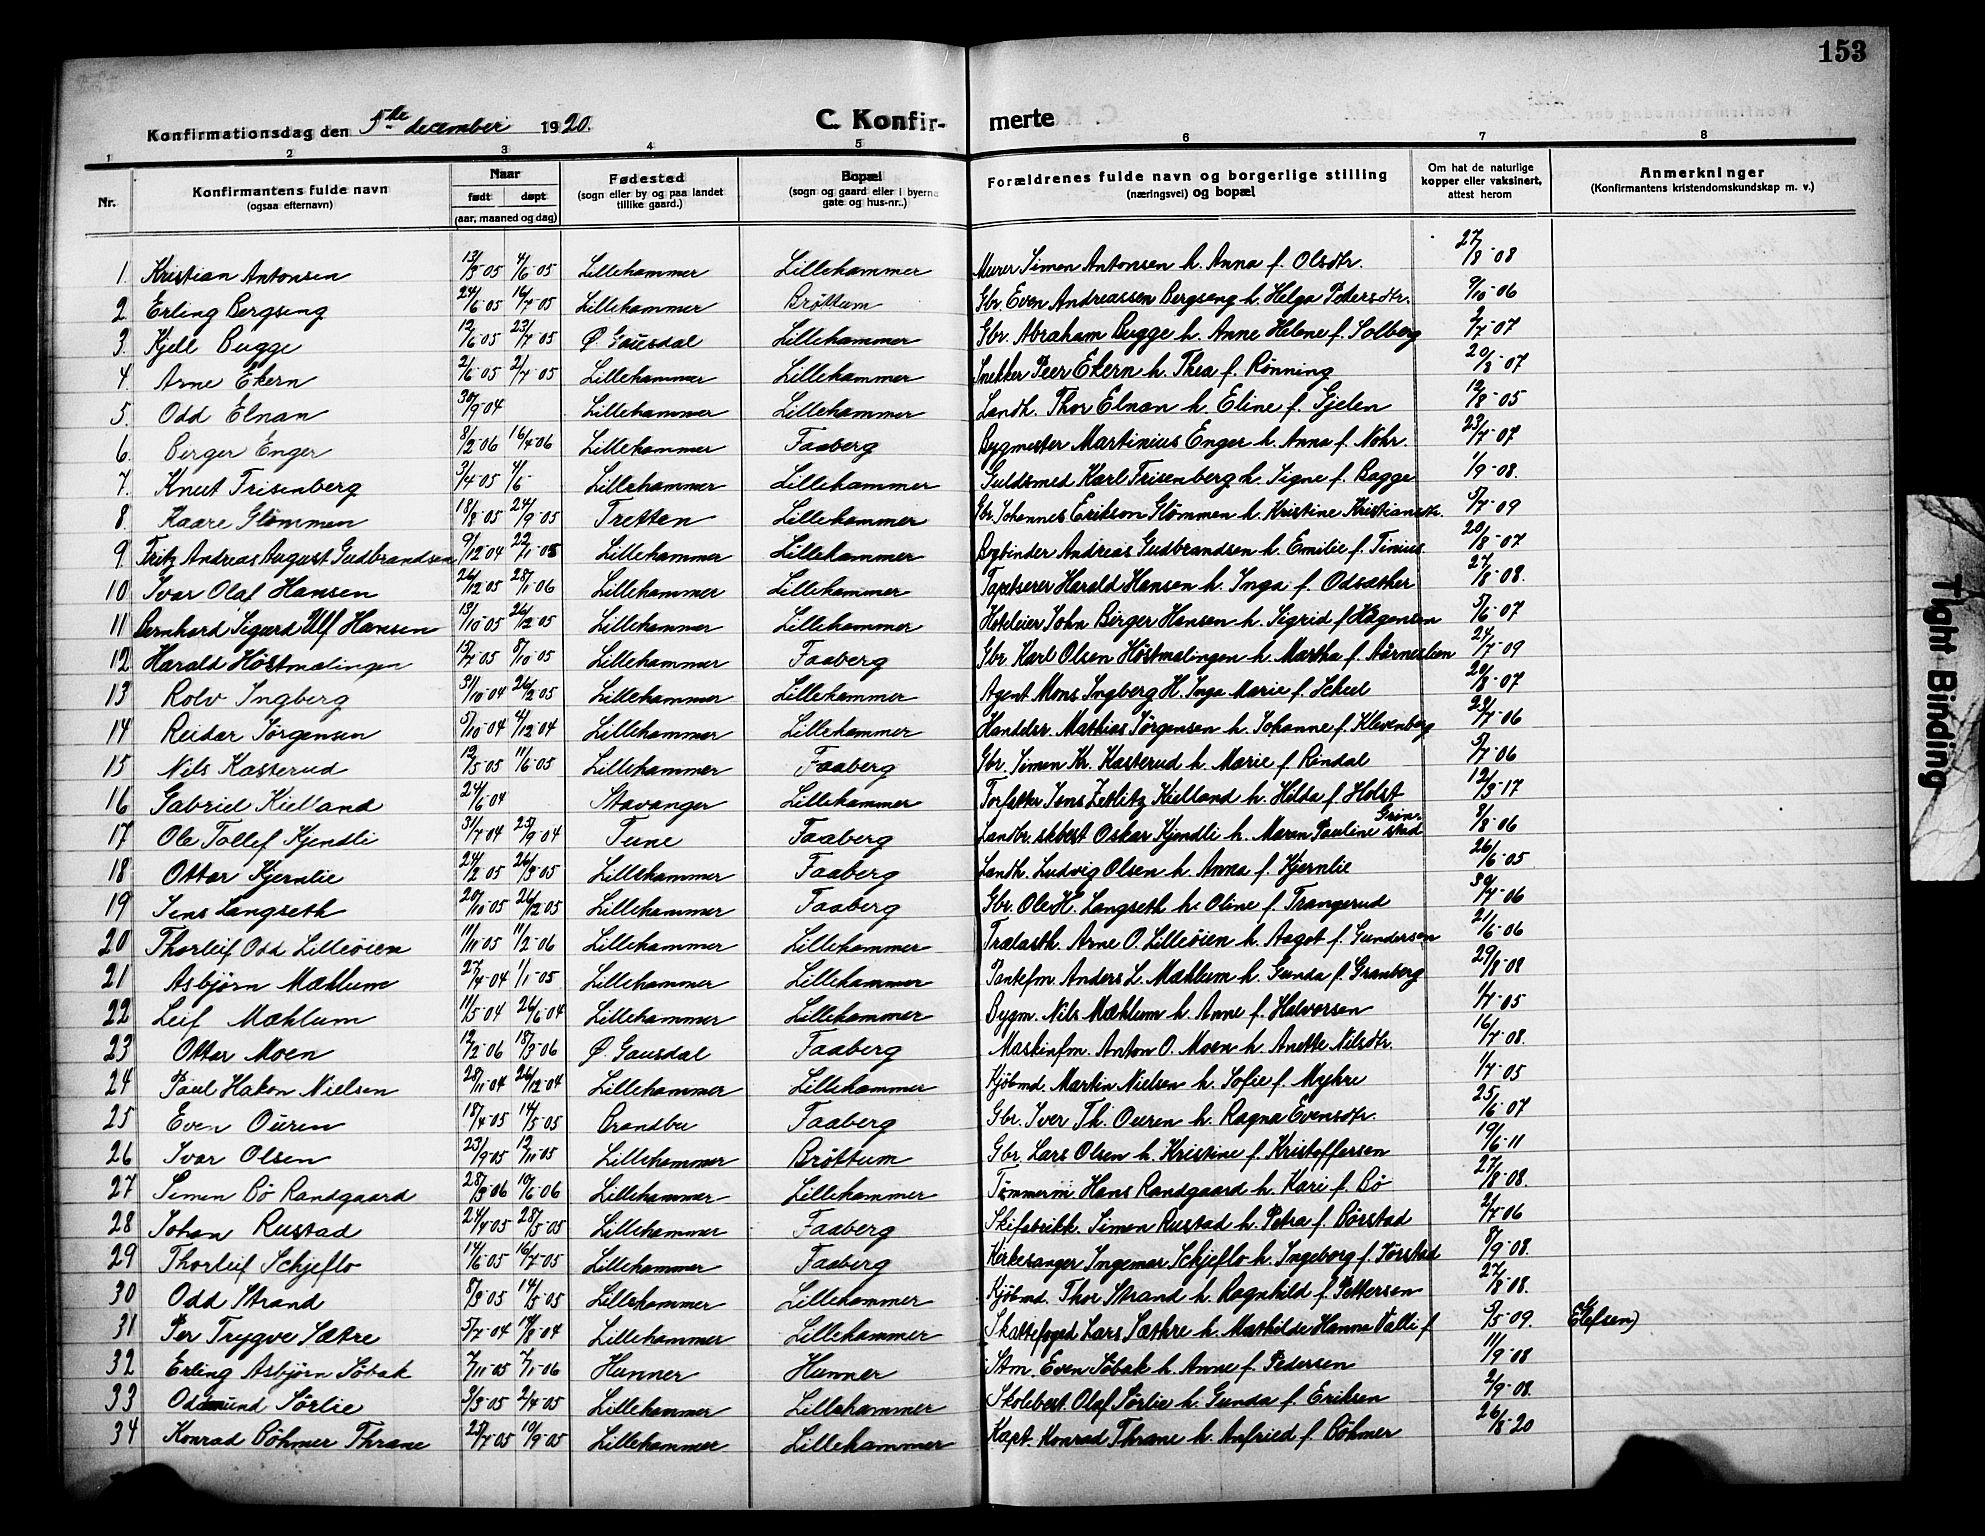 153
Konfirmationsdag den 5te december 1920.
C. Konfir- merte
1 2 3 4 5 6 7 8
Nr. Konfirmantens fulde navn (ogsaa efternavn) Naar født døpt (aar, maaned og dag) Fødested (sogn eller by og paa landet tillike gaard.) Bopæl (sogn og gaard eller i byerne gate og hus-nr..) Forældrenes fulde navn og borgerlige stilling (næringsvei) og bopæl Om hat de naturlige kopper eller vaksinert, attest herom Anmerkninger (Konfirmantens kristendomskundskap m. v.)
1. Kristian Antonsen 13/3-05 4/6-05 Lillehammer Lillehammer Murer Simen Antonsen h. Anna f. Olsdtr. 27/8-08
2. Erling Bergseng 24/6-05 16/7-05 Lillehammer Brøttum Gbr. Even Andreassen Bergseng h. Helga Petersdtr. 9/10-06
3. Kjell Bugge 12/6-05 23/7-05 Ø. Gausdal Lillehammer Gbr. Abraham Bugge h. Anne Helene f. Solberg 2/7-07
4. Arne Ekern 2/6-05 2/7-05 Lillehammer Lillehammer Snekker Peer Ekern h. Thea f. Rønning 20/8-07
5. Odd Elnan 30/9-04 Lillehammer Lillehammer Landh. Thor Elnan h. Eline f. Gjelen 12/8-05
6. Berger Enger 8/2-06 16/4-06 Lillehammer Faaberg Bygmester Martinius Enger h. Anna f. Nohr. 23/7-07
7. Knut Frisenberg 3/4-05 4/6- Lillehammer Lillehammer Guldsmed Karl Frisenberg h. Signe f. Bagge 1/9-08.
8. Kaare Glømmen 18/8-05 24/9-05 Tretten Lillehammer Gbr. Johannes Erikson Glömmen h. Kristine Kristiansdtr. 5/7-09
9. Fritz Andreas August Gudbrandsen 9/12-04 22/1-05 Lillehammer Lillehammer Bogbinder Andreas Gudbrandsen h. Emilie f. Tinius 20/8-07
10 Ivar Olaf Hansen 26/12-05 28/1-06 Lillehammer Lillehammer Tapetserer Harald Hansen h. Inga f. Odsæther 27/8-08.
11 Bernhard Sigurd Ulf Hansen 13/10-05 26/12-05 Lillehammer Lillehammer Hoteleier John Birger Hansen h. Sigrid f Hågensen 5/6-07
12 Harald Höstmælingen 15/7-05 8/10-05 Lillehammer Faaberg Gbr. Karl Olsen Höstmælingen h. Martha f. 24/7-09
13 Rolv Ingberg 31/10-04 26/2-05 Lillehammer Lillehammer Agent Mons Ingberg H. Inga Marie f. Scheel 20/8-07
14 Reidar Jörgensen 5/10-04 4/12-04 Lillehammer Lillehammer Handelsr. Mathias Jörgensen h. Johanne f. Klevenberg 23/7-06
15 Nils Kasterud 12/5-05 11/6-05 Lillehammer Faaberg Gbr. Simen Kr. Kasterud h. Marie f. Rindal 5/7-06
16 Gabriel Kielland 24/6-04 Stavanger Lillehammer Forfatter Jens Zetlitz Kielland h. Hilda f Holst 12/3-17
17 Ole Tollef Kjendli 31/7-04 25/9-04 Tune Faaberg Landbr. skbest Oskar Kjendli h. Maren Pauline Grimstad 8/8-06
18 Ottar Kjernlie 24/2-05 26/3-05 Lillehammer Faaberg Landh. Ludvig Olsen h. Anna f. Kjernlie 26/6-05
19 Jens Langseth 20/10-05 26/12-05 Lillehammer Faaberg Gbr. Ole H. Langseth h. Oline f. Trangerud 30/7-06
20 Thorleif Odd Lilleöien 11/11-05 11/2-06 Lillehammer Lillehammer Trælasth. Arne O. Lilleöien h. Aagot f. Gundersen 21/6-06
21 Asbjörn Mæhlum 27/4-04 1/1-05 Lillehammer Lillehammer Pantefm. Anders L. Mæhlum h. Gunda f. Granberg 29/8-08
22 Leif Mæhlum 11/5-04 26/6-04 Lillehammer Lillehammer Bygm. Nils Mæhlum h. Anne f. Halvorsen 1/7-05
23 Ottar Moen 12/2-06 18/3-06 Ø. Gausdal Faaberg Maskinfm. Anton O. Moen h. Anette Nilsdtr. 16/7-08.
24 Paul Hakon Nielsen 28/11-04 26/12-04 Lillehammer Lillehammer Kjöbmd. Martin Nielsen h. Sofie f. Myhre 1/7-05
25 Even Ouren 18/4-05 14/5-05 Brandbu Faaberg Gbr. Iver Th. Ouren h. Ragna Evensdtr. 25/6-07
26 Ivar Olsen 23/9-05 12/11-05 Lillehammer Brøttum Gbr. Lars Olsen h. Kristine f. Kristoffersen 19/6-11
27 Simen Bö Randgaard 28/3-06 10/6-06 Lillehammer Lillehammer Tömmerm. Hans Randgaard h. Kari f. Bö 27/8-08.
28 Johan Rustad 24/4-05 28/5-05 Lillehammer Faaberg Skifabrikk. Simen Rustad h. Petra f. Börstad 2/7-06
29 Thorleif Schjeflo 14/6-05 16/7-05 Lillehammer Faaberg Kirkesanger Ingemar Schjeflo h. Ingeborg f. Jörstad 8/9-08.
30 Odd Strand 8/3-05 14/5-05 Lillehammer Lillehammer Kjöbmd. Thor Strand h. Ragnhild f. Pettersen 27/8-08.
31 Per Trygve Sætre 5/7-04 14/8-04 Lillehammer Lillehammer Skattefoged Lars Sæthre h. Mathilde Hanna Valli f 5/5-09. Elefsen)
32 Erling Asbjörn Söbak 7/11-05 7/1-06 Hunner Hunner Stm. Even Söbak h. Anne f. Pedersen 11/9-08
33 Odmund Sörlie 3/3-05 2/4-05 Lillehammer Lillehammer Skolebest. Olaf Sörlie h. Gunda f. Eriksen 2/9-08.
34 Konrad Böhmer Thrane 25/7-05 10/9-05 Lillehammer Lillehammer Kapt. Konrad Thrane h. Anfried f. Böhmer 26/8-20
Tight Binding